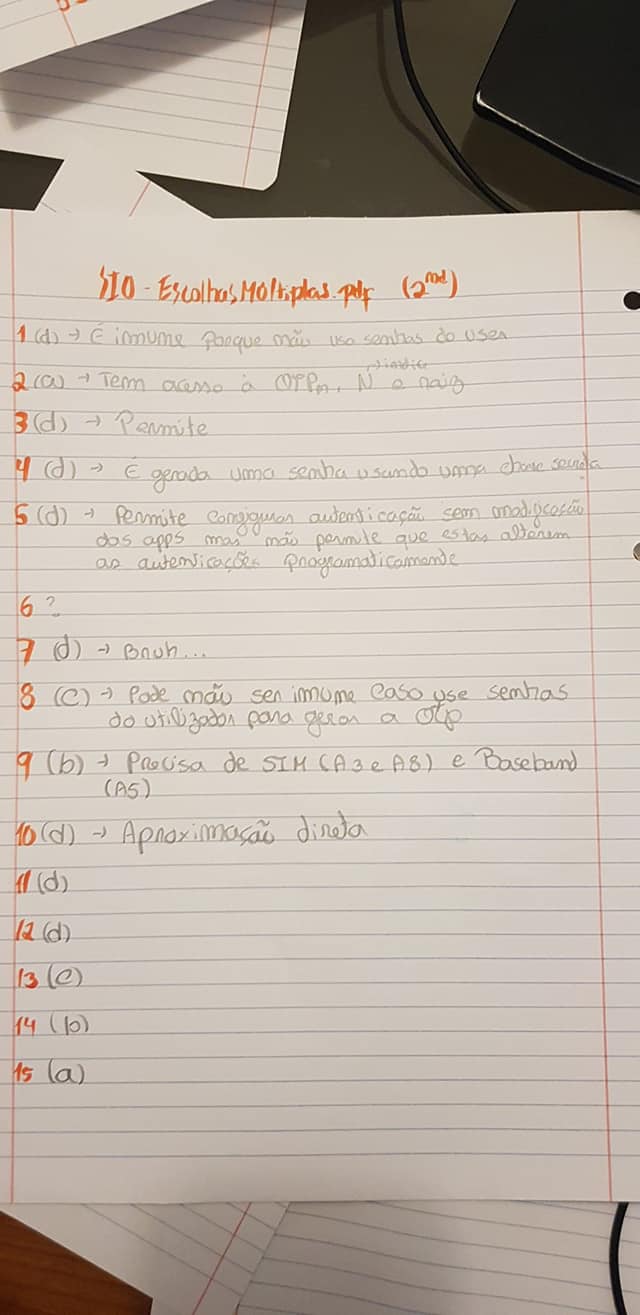 SIO - Escolhas Múltiplas.pdf (2nd)
1 (d) → É imune porque não usa senhas do user
→ indice
2 (a) → Tem acesso à OTPn, N e raiz
3 (d) → Permite
4 (d) → É gerada uma senha usando uma chave secreta
5 (d) → Permite configurar autenticação sem modificação
das apps mas não permite que estas alterem
as autenticações programaticamente
6 ?
7 (d) → Bruh...
8 (c) → Pode não ser imune caso use senhas
do utilizador para gerar a otp
9 (b) → Precisa de SIM (A3 e A8) e Baseband
(A5)
10 (d) → Aproximação direta
11 (d)
12 (d)
13 (c)
14 (b)
15 (a)